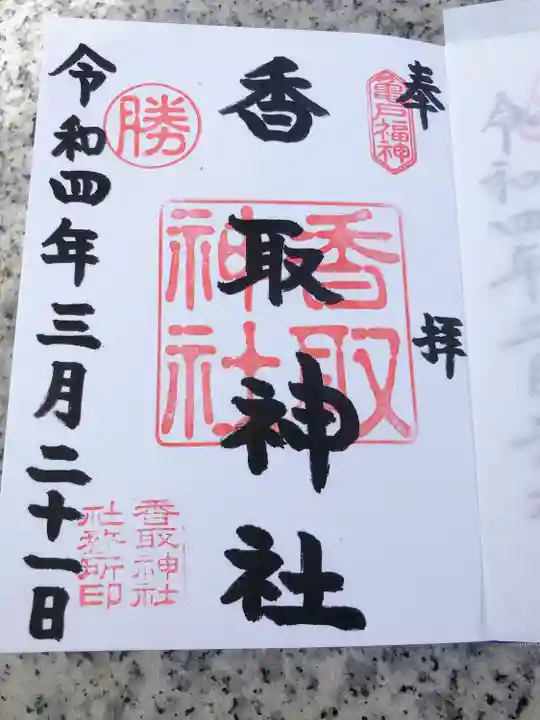 奉拝
亀戸福神
香取神社
香取
神社
勝
香取神社
社務所印
令和四年三月二十一日